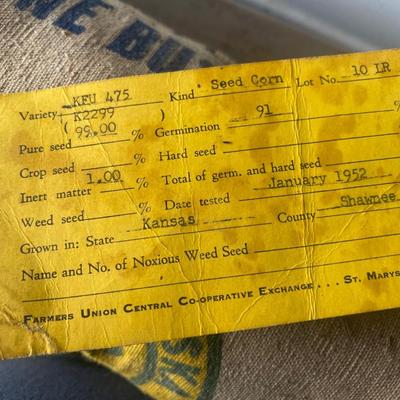 THE BU
Variety KFU 475 Kind Seed Corn Lot No. 10 LR
( K2299 )
Pure seed 99.00 % Germination 91 %
Crop seed % Hard seed
Inert matter 1.00 % Total of germ. and hard seed
Weed seed % Date tested January 1952
Grown in: State Kansas County Shawnee
Name and No. of Noxious Weed Seed
FARMERS UNION CENTRAL CO-OPERATIVE EXCHANGE . . . ST. MARYS